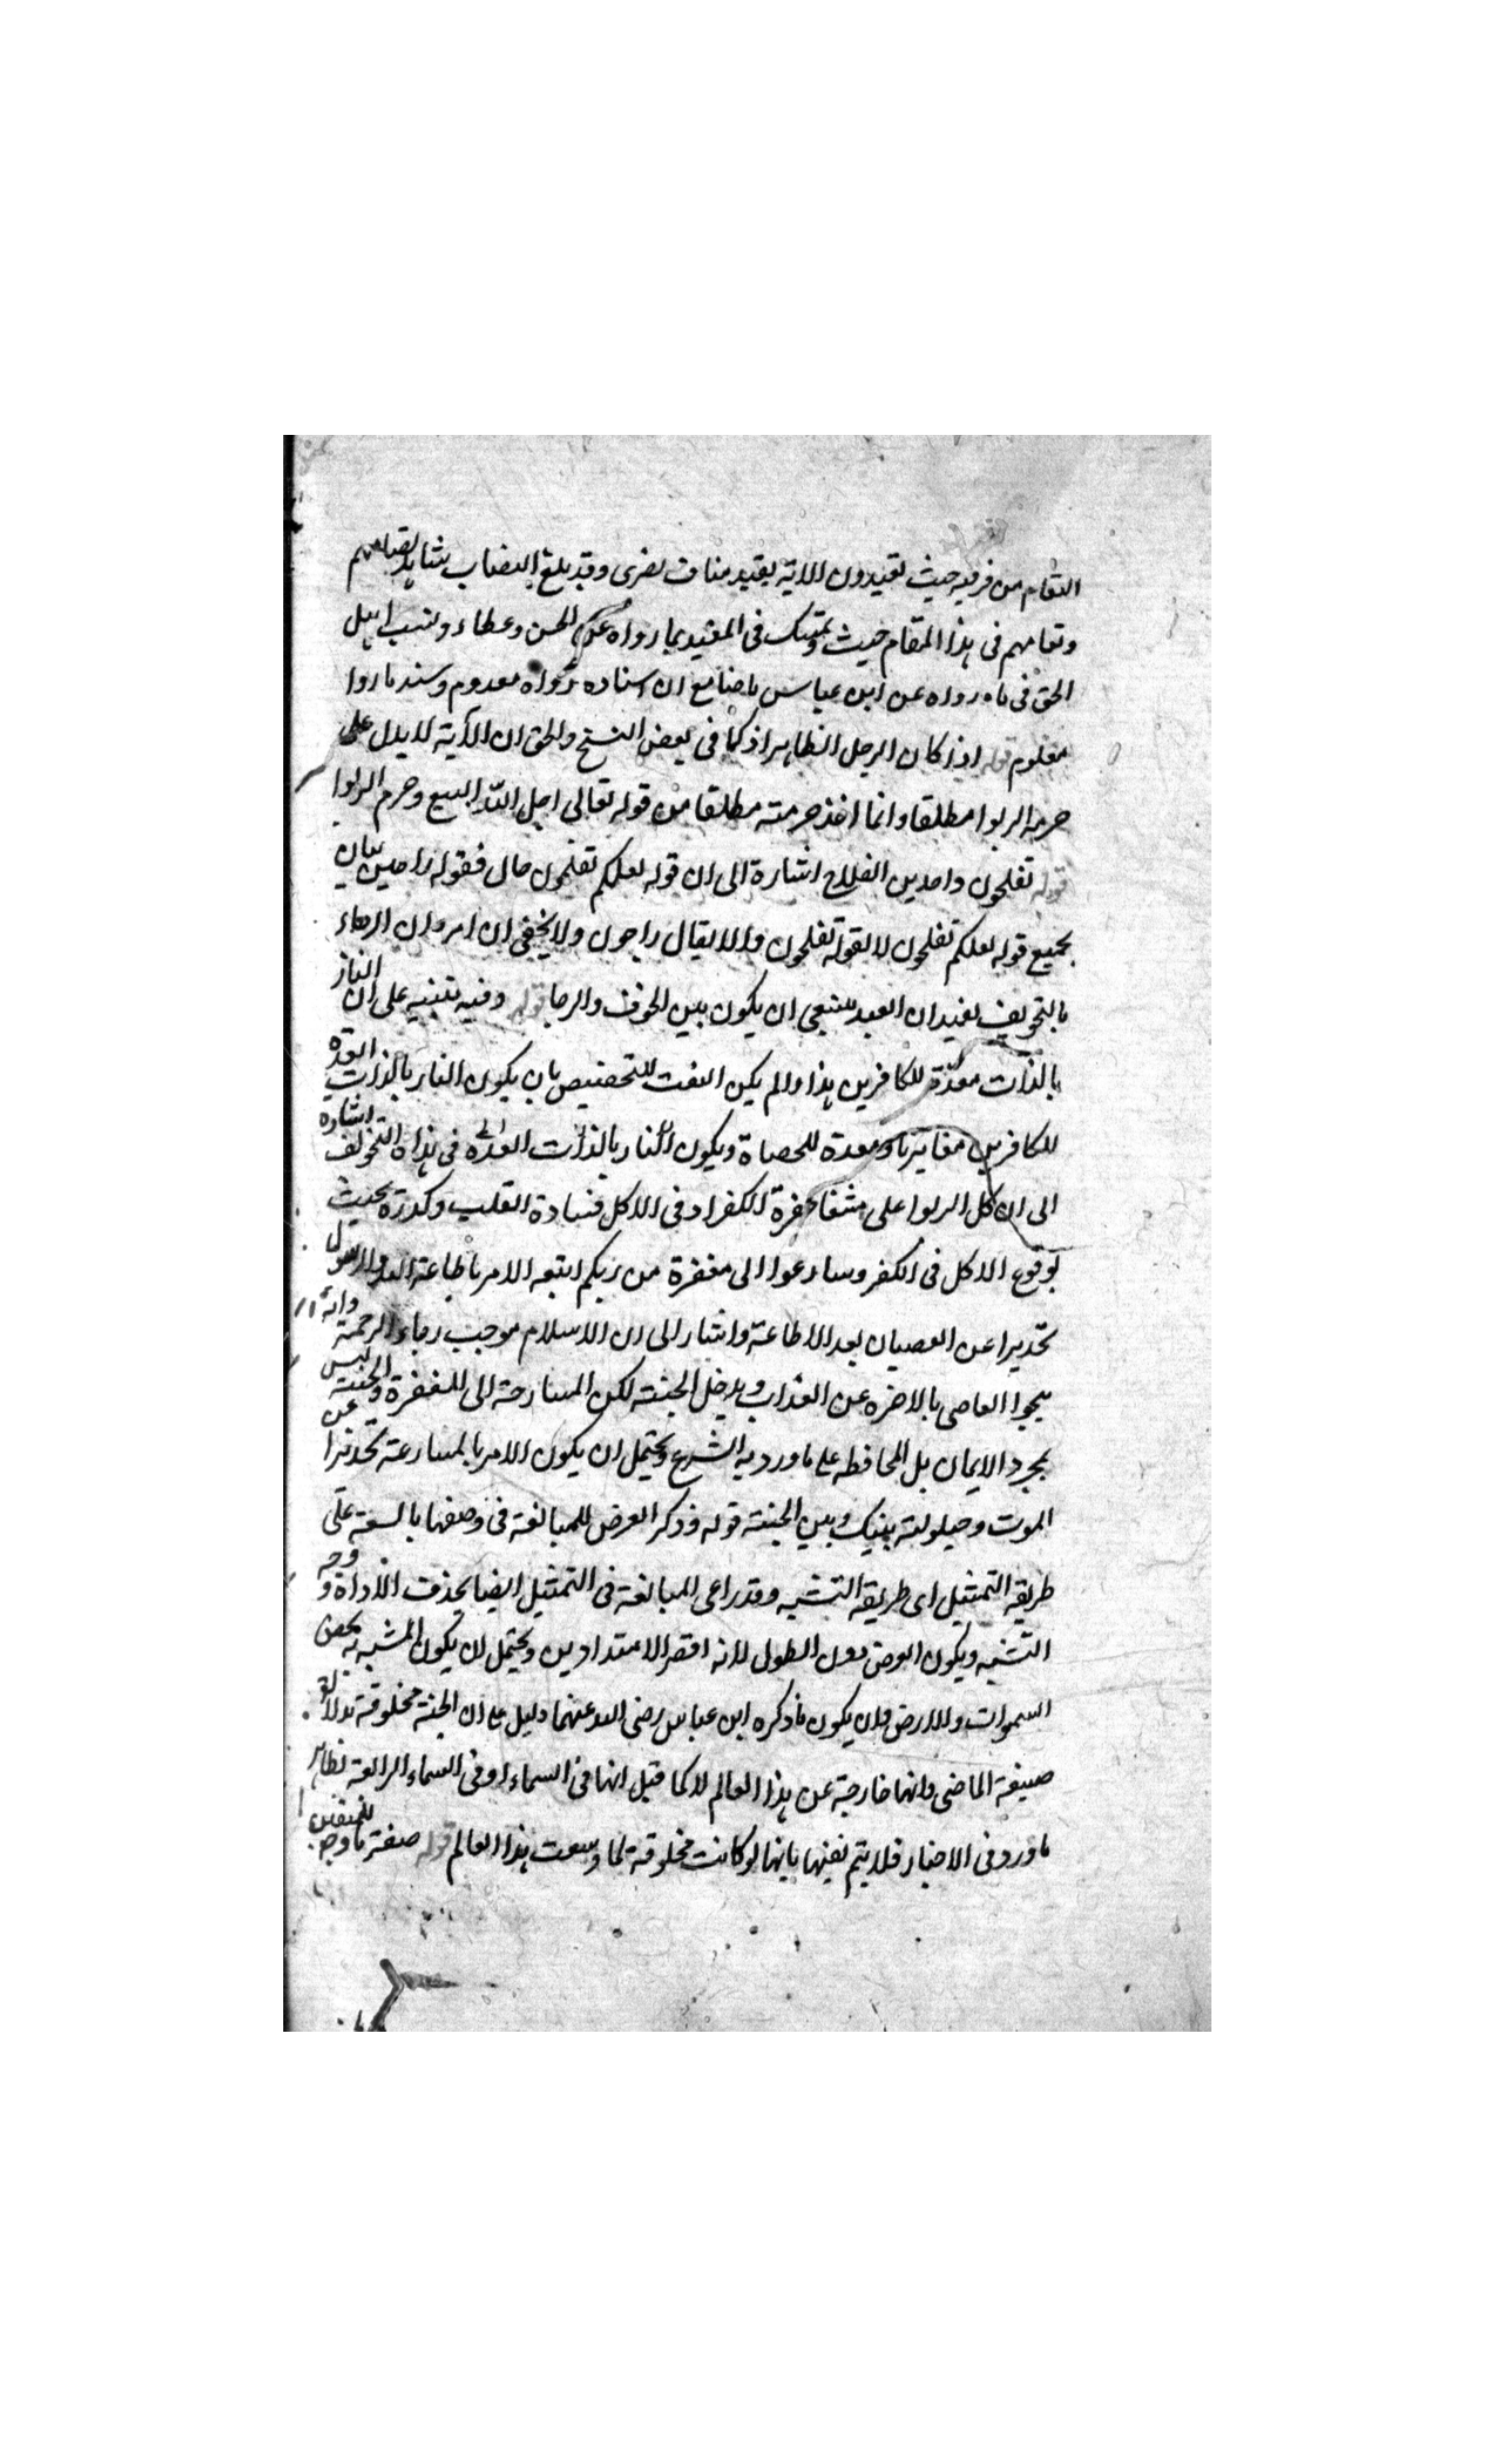 المقام من فريه حيث تقيدون الاية بقيد مناف لغرى وقد بلغ النصاب
وتعامهم فى هذا المقام حيث وتمسك فى المقيد بما رواه عن الحسن وعطاء ونسب اهل
الحق فى ما رواه عن ابن عباس مع ان اسناده رواه معدوم وسند ما روا
معلوم قوله اذا كان الرجل الظاهر اذ كما فى بعض النسخ والحق ان الآية لا يدل على
حرمه الربوا مطلقا وانما اخذ حرمته مطلقا من قوله تعالى احل الله البيع وحرم الربوا
قوله تفلحون واحدين الفلاح اشارة الى ان قوله لعلكم تفلحون حال فقوله راجين بيان
بجميع قوله لعلكم تفلحون لا لقوله تفلحون والا لقال راجون ولا يخفى ان امر وان الرجاء
بالتخويف يفيد ان العبد ينبغى ان يكون بين الخوف والرجا قوله وفيه تنبيه على ان النار
بالذات معدة للكافرين هذا ولم يكن النعت للتخصيص بان يكون النار بالذات المعدة
للكافرين مغايرة ومعدة للعصاة ويكون النار بالذات المعدة فى هذا التخويف اشارة
الى ان اكل الربوا على شفا حفرة الكفر اد فى الاكل قساوة القلب وكدرة بحيث
يوقوع الاكل فى الكفر وسارعوا الى مغفرة من ربكم اتبعه الامر باطاعة الله والرسول
تحذيرا عن العصيان بعد الاطاعة واشار الى ان الاسلام موجب رجاء الرحمة وانه
ينجوا العاصى بالاخره عن العذاب ويدخل الجنة لكن المسارعة الى المغفرة والجنة ليس
بمجرد الايمان بل المحافظه على ما ورد به الشرع ويحتمل ان يكون الامر بالمسارعة تحذيرا عن
الموت وحيلولته بينك وبين الجنة قوله وذكر العرض للمبالغة فى وصفها بالسعة على
طريقه التمثيل اى طريقه التشبيه وقد راعى المبالغة فى التمثيل ايضا بحذف الاداة ووجه
التشبيه ويكون العرض دون الطول لانه اقصر الامتدادين ويحتمل ان يكون المشبه به بعرض
السموات والارض وان يكون ما ذكره ابن عباس رضى الله عنهما دليل على ان الجنة مخلوقة بدلالة
صيغة الماضى وانها خارجة عن هذا العالم لا كما قيل انها فى السماء او فى السماء الرابعة نظاهر
ما ورد فى الاخبار فلا يتم نفيها بانها لو كانت مخلوقة لما وسعت هذا العالم قوله صفة مادحة للمتقين